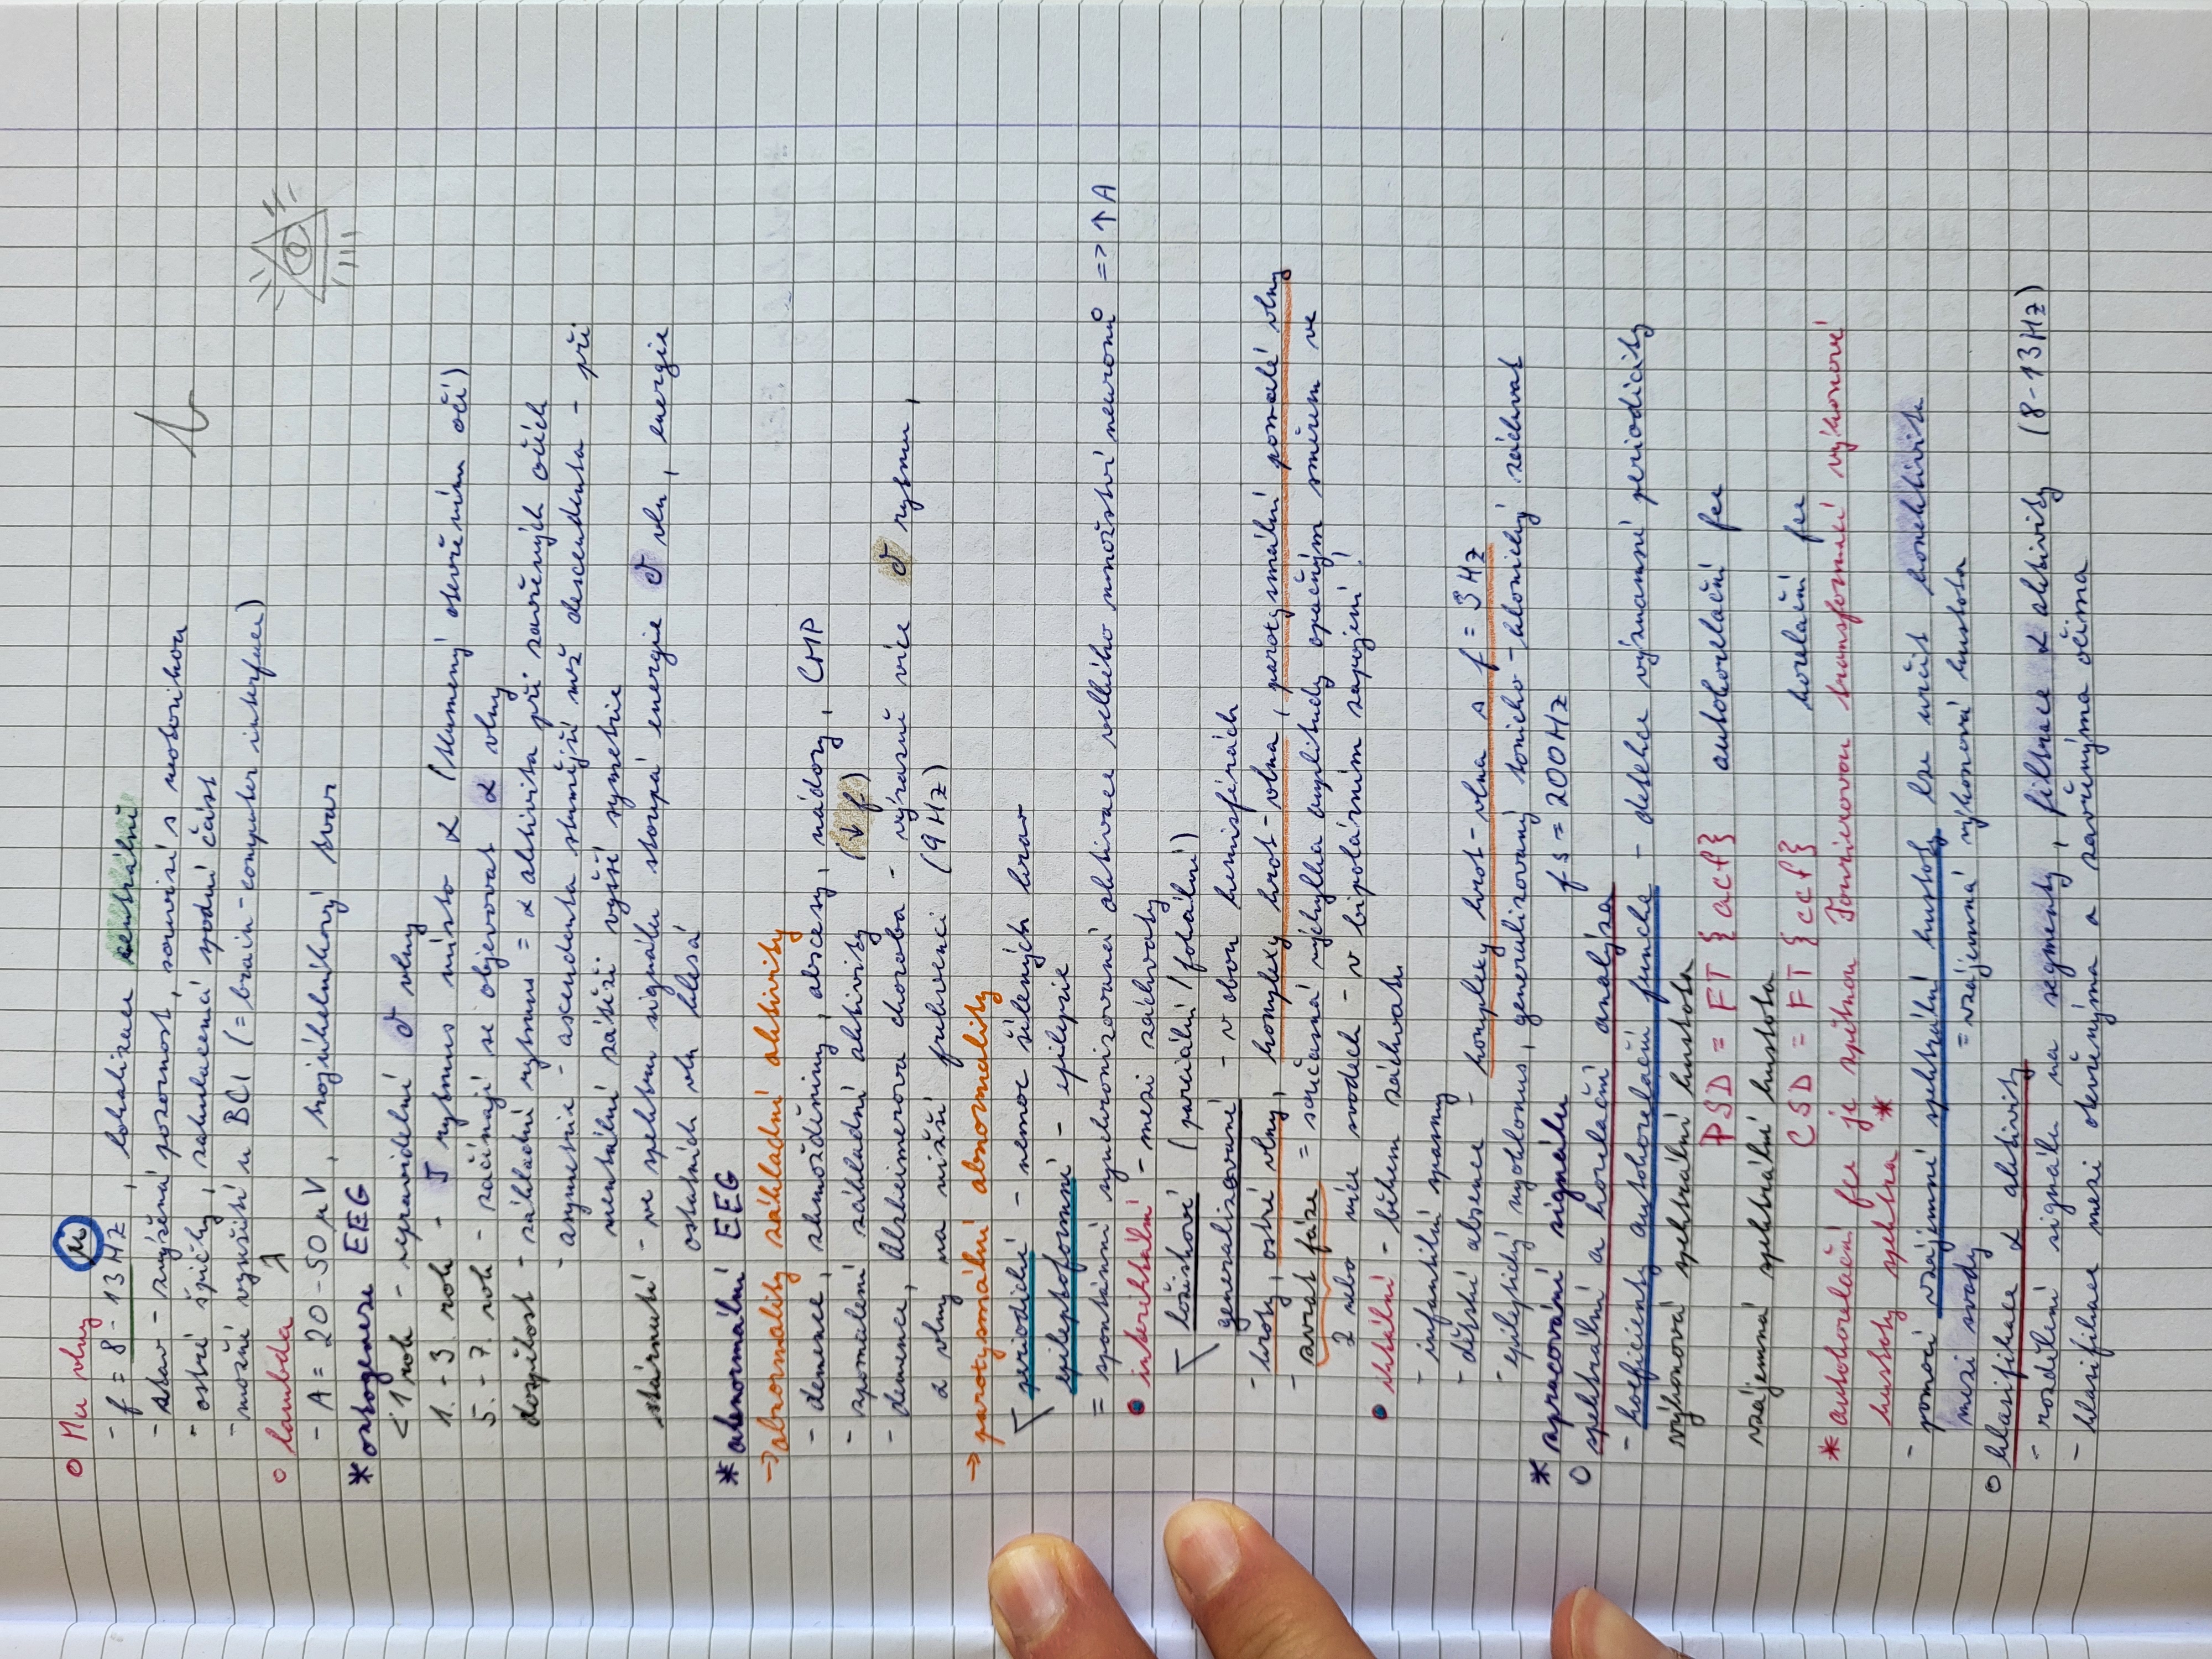 ○ Mu vlny μ
- f = 8 - 13 Hz, lokalizace centrální
- stav - zvýšená pozornost, souvisí s motorikou
- ostré špičky, zakulacená spodní část
- možné využití u BCI (= brain-computer interface)
○ lambda λ
- A = 20 - 50 μV, trojúhelníkový tvar
* ontogeneze EEG
< 1 rok - nepravidelné δ vlny
1. - 3. rok - rytmus místo α (tlumený otevřením očí)
5. - 7. rok - začínají se objevovat α vlny
dospělost - základní rytmus = α aktivita při zavřených očích
- asymetrie - ascendenta strmější než descendenta - při
mentální zátěži vyšší symetrie
stárnutí - ve spektru signálu stoupá energie δ vln, energie
ostatních vln klesá
* abnormální EEG
→ abnormality základní aktivity
- demence, zhmožděniny, abscesy, nádory, CMP
- zpomalení základní aktivity (↓ f)
- demence, Alzheimerova choroba - výrazně více δ rytmu,
α vlny na nižší frekvenci (9 Hz)
→ paroxysmální abnormality
periodické - nemoc šílených krav
epileptoformní - epilepsie
= spontánní synchronizovaná aktivace velkého množství neuronů => ↑ A
• interiktální - mezi záchvaty
ložiskové (parciální / fokální)
generalizované - v obou hemisférách
- hroty, ostré vlny, komplexy hrot-vlna, paroxysmální pomalé vlny
- zvrat fáze = současná výchylka amplitudy opačným směrem ve
2 nebo více svodech - v bipolárním zapojení!
• iktální - během záchvatu
- infantilní spasmy
- dětské absence - komplexy hrot-vlna s f = 3 Hz
- epileptický myoklonus, generalizovaný tonicko-klonický záchvat
* zpracování signálu fs = 200 Hz
○ spektrální a korelační analýza
- koeficienty autokorelační funkce - detekce významné periodicity
výkonová spektrální hustota
PSD = FT {acf} autokorelační fce
vzájemná spektrální hustota
CSD = FT {ccf} korelační fce
* autokorelační fce je zpětnou Fourierovou transformací výkonové
hustoty spektra *
- pomocí vzájemné spektrální hustoty lze určit konektivitu
mezi svody = vzájemná výkonová hustota
○ klasifikace α aktivity
- rozdělení signálu na segmenty, filtrace α aktivity (8-13 Hz)
- klasifikace mezi otevřenýma a zavřenýma očima